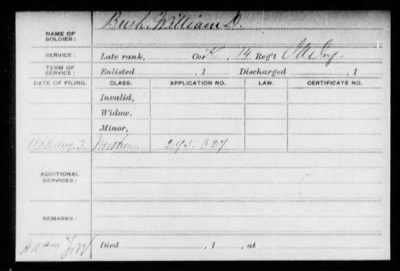 NAME OF SOLDIER: Bush, William D.
SERVICE: Late rank, Co. K, 14 Reg't Inf.
TERM OF SERVICE: Enlisted , 1 Discharged , 1
DATE OF FILING. CLASS. APPLICATION NO. LAW. CERTIFICATE NO.
Invalid,
Widow,
Minor,
Aug. 2 Mother 295.827
ADDITIONAL SERVICES:
REMARKS:
Died , 1 , at